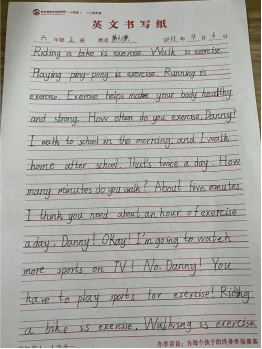 英文书写纸
六 年级 2 班 姓名 2021 年 4 月 6 日
Riding a bike is exercise. Walk is exercise.
Playing ping-pong is exercise. Running is
exercise. Exercise helps make your body healthy
and strong. How often do you exercise, Danny?
I walk to school in the morning, and I walk
home after school. That's twice a day. How
many minutes do you walk? About five minutes
I think you need about an hour of exercise
a day, Danny! Okay! I'm going to watch
more sports on TV! No. Danny! You
have to play sports for exercise! Riding
a bike is exercise. Walking is exercise
为每个孩子的终身幸福奠基